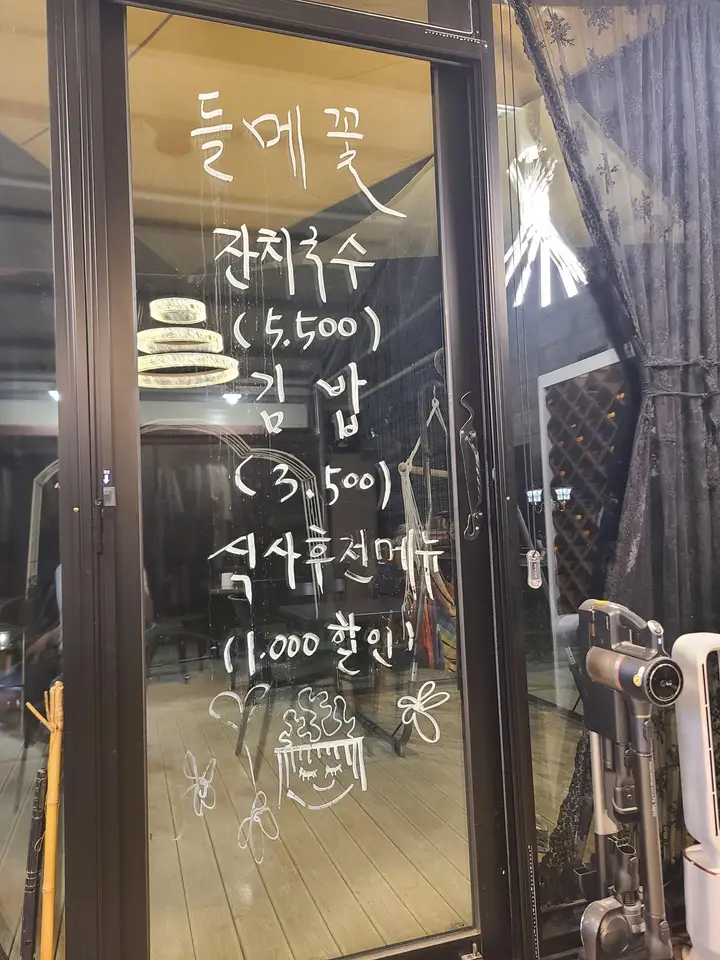 들메꽃
잔치국수
(5.500)
김밥
(3.500)
식사후전메뉴
(1.000 할인!